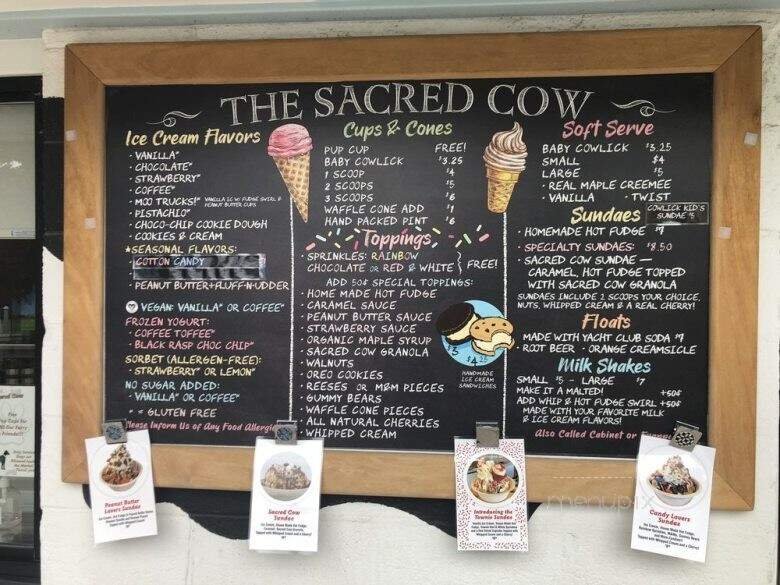 THE SACRED COW
Ice Cream Flavors
· VANILLA*
· CHOCOLATE*
· STRAWBERRY*
· COFFEE*
· MOO TRUCKS!* VANILLA IC W/ FUDGE SWIRL &
PEANUT BUTTER CUPS
· PISTACHIO*
· CHOCO-CHIP COOKIE DOUGH
· COOKIES & CREAM
*SEASONAL FLAVORS:
COTTON CANDY
· PEANUT BUTTER+FLUFF-N-UDDER
VEGAN: VANILLA* OR COFFEE*
FROZEN YOGURT:
· COFFEE TOFFEE*
· BLACK RASP CHOC CHIP*
SORBET (ALLERGEN-FREE):
· STRAWBERRY* OR LEMON*
NO SUGAR ADDED:
· VANILLA* OR COFFEE*
* = GLUTEN FREE
Please Inform Us of Any Food Allergie
Cups & Cones
PUP CUP FREE!
BABY COWLICK $3.25
1 SCOOP $4
2 SCOOPS $5
3 SCOOPS $6
WAFFLE CONE ADD $1
HAND PACKED PINT $6
Toppings
· SPRINKLES: RAINBOW
CHOCOLATE OR RED & WHITE } FREE!
ADD 50¢ SPECIAL TOPPINGS:
· HOME MADE HOT FUDGE
· CARAMEL SAUCE
· PEANUT BUTTER SAUCE
· STRAWBERRY SAUCE
· ORGANIC MAPLE SYRUP
· SACRED COW GRANOLA
· WALNUTS
· OREO COOKIES
· REESES OR M&M PIECES
· GUMMY BEARS
· WAFFLE CONE PIECES
· ALL NATURAL CHERRIES
· WHIPPED CREAM
$3
$4.25
HANDMADE
ICE CREAM
SANDWICHES
Soft Serve
BABY COWLICK $3.25
SMALL $4
LARGE $5
· REAL MAPLE CREEMEE
· VANILLA · TWIST
Sundaes
COWLICK KID'S
SUNDAE $5
· HOMEMADE HOT FUDGE $7
· SPECIALTY SUNDAES: $8.50
· SACRED COW SUNDAE —
CARAMEL, HOT FUDGE TOPPED
WITH SACRED COW GRANOLA
SUNDAES INCLUDE 2 SCOOPS YOUR CHOICE,
NUTS, WHIPPED CREAM & A REAL CHERRY!
Floats
MADE WITH YACHT CLUB SODA $7
· ROOT BEER · ORANGE CREAMSICLE
Milk Shakes
SMALL $5 - LARGE $7
MAKE IT A MALTED! +50¢
ADD WHIP & HOT FUDGE SWIRL +50¢
MADE WITH YOUR FAVORITE MILK
& ICE CREAM FLAVORS!
Also Called Cabinet or
Peanut Butter
Lovers Sundae
Sacred Cow
Sundae
Introducing the
Townie Sundae
Candy Lovers
Sundae
Topped with Whipped Cream and a Cherry!
menupix